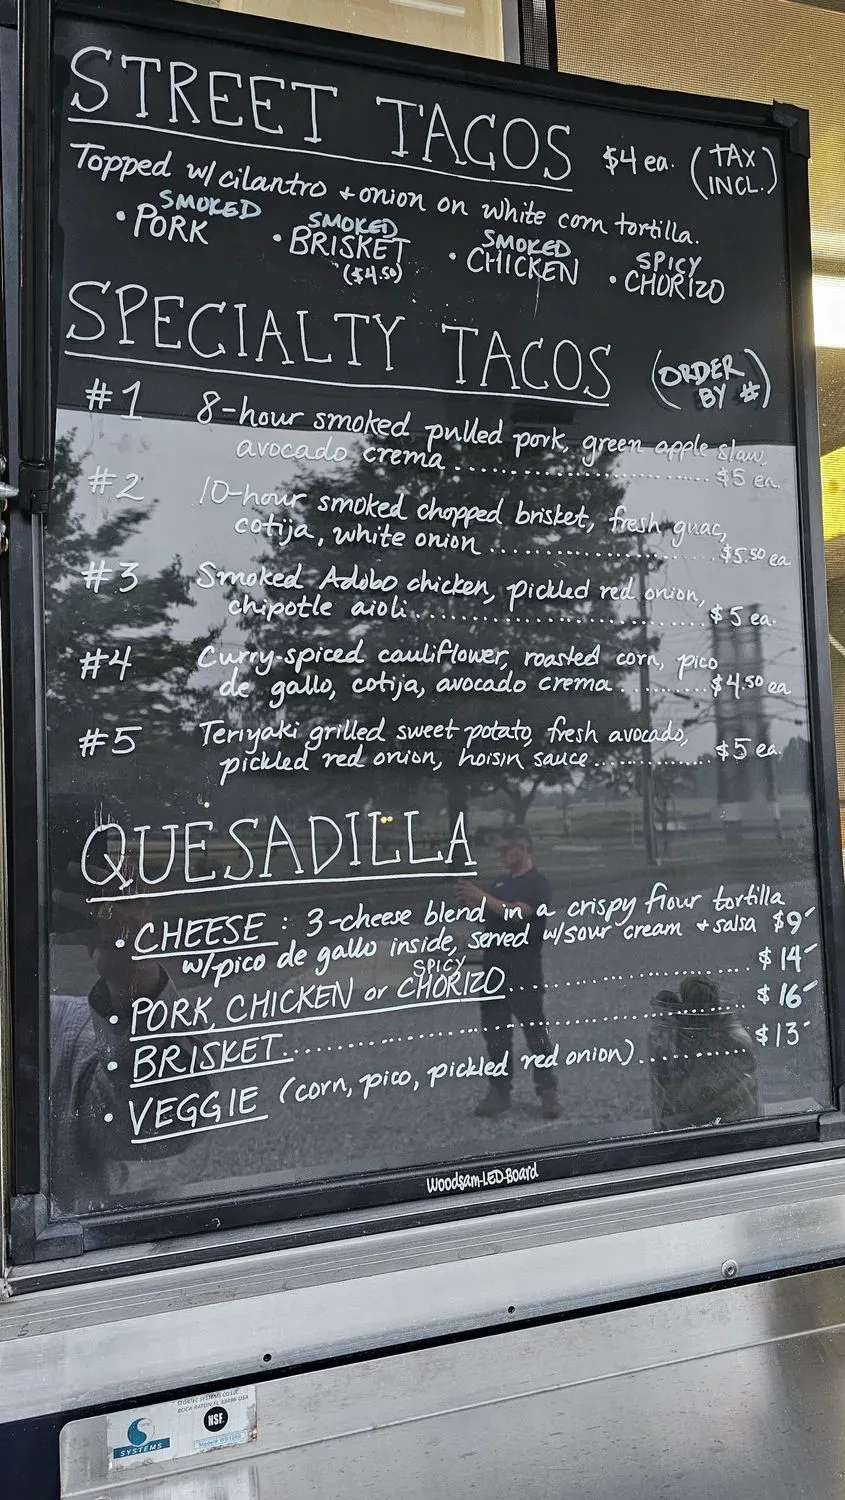 STREET TACOS $4 ea. (TAX INCL.)
Topped w/ cilantro + onion on white corn tortilla.
• SMOKED PORK • SMOKED BRISKET ($4.50) • SMOKED CHICKEN • SPICY CHORIZO
SPECIALTY TACOS (ORDER BY #)
#1 8-hour smoked pulled pork, green apple slaw,
avocado crema ........ $5 ea.
#2 10-hour smoked chopped brisket, fresh guac,
cotija, white onion ........ $5.50 ea
#3 Smoked Adobo chicken, pickled red onion,
chipotle aioli ........ $5 ea.
#4 Curry-spiced cauliflower, roasted corn, pico
de gallo, cotija, avocado crema ........ $4.50 ea
#5 Teriyaki grilled sweet potato, fresh avocado,
pickled red onion, hoisin sauce ........ $5 ea.
QUESADILLA
• CHEESE : 3-cheese blend in a crispy flour tortilla
w/pico de gallo inside, served w/sour cream + salsa $9
• PORK, CHICKEN or SPICY CHORIZO ........ $14
• BRISKET ........ $16
• VEGGIE (corn, pico, pickled red onion) ........ $13
Woodsam-LED-Board
BOCA RATON, FL 33496 USA
NSF
SYSTEMS